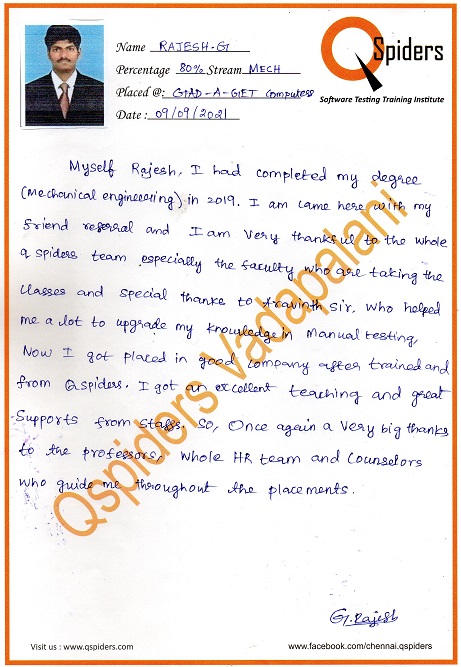 Name RAJESH-G
Percentage 80% Stream MECH
Placed @: GAD-A-GET Computers
Date : 09/09/2021
QSpiders
Software Testing Training Institute
Myself Rajesh, I had completed my degree
(Mechanical engineering) in 2019. I am came here with my
friend referral and I am very thankful to the whole
q spiders team especially the faculty who are taking the
classes and special thanks to Aravinth sir, who helped
me a lot to upgrade my knowledge in Manual testing,
Now I got placed in good company after trained and
from Qspiders. I got an excellent teaching and great
Supports from Staffs. So, Once again a very big thanks
to the professors, whole HR team and Counselors
who guide me throughout the placements.
Qspiders Vadapalani
G. Rajesh
Visit us : www.qspiders.com
www.facebook.com/chennai.qspiders